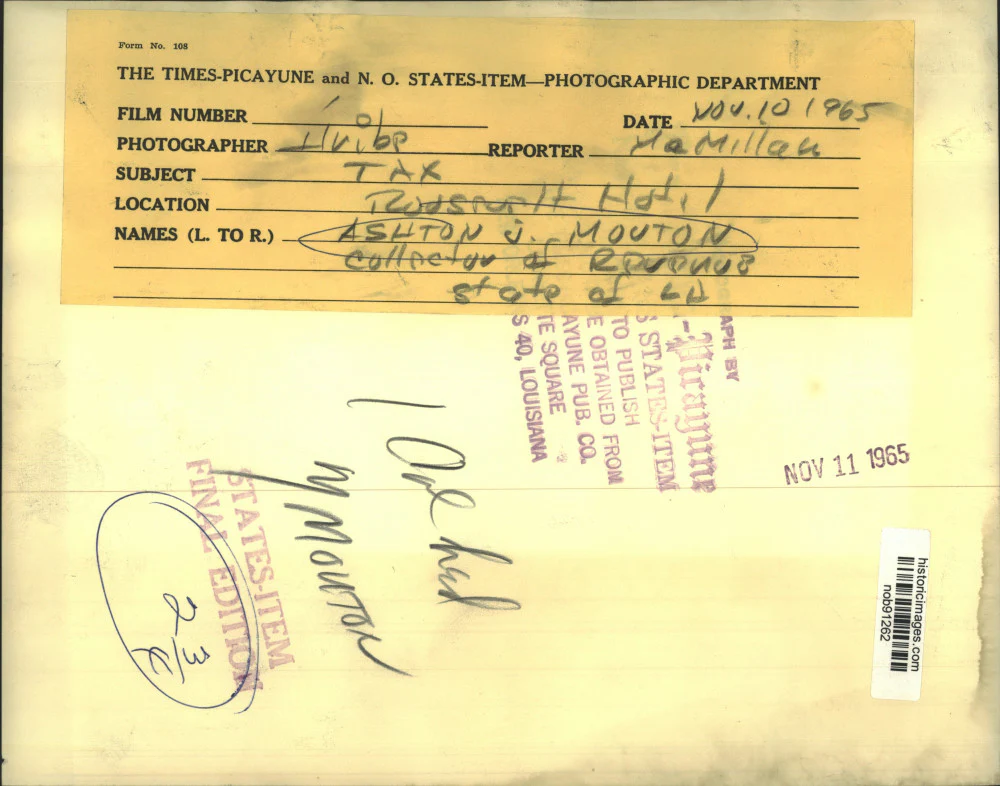 Form No. 108
THE TIMES-PICAYUNE and N. O. STATES-ITEM—PHOTOGRAPHIC DEPARTMENT
FILM NUMBER
DATE NOV. 10 1965
PHOTOGRAPHER
REPORTER McMillan
SUBJECT TAX
LOCATION Roosevelt Hotel
NAMES (L. TO R.) ASHTON J. MOUTON
Collector of Revenue
State of LA
APH BY
-Picayune
STATES-ITEM
TO PUBLISH
E OBTAINED FROM
AYUNE PUB. CO.
TE SQUARE
S 40, LOUISIANA
NOV 11 1965
1 col head
MOUTON
STATES-ITEM
FINAL EDITION
2 3/4
historicimages.com
nob91262